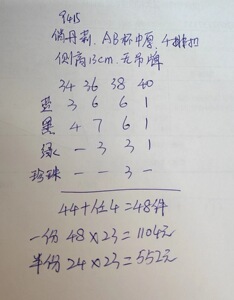 9415
俏丹莉. AB杯中厚. 4排扣
侧高13cm. 无吊牌
34 36 38 40
蓝 3 6 6 1
黑 4 7 6 1
绿 - 3 3 1
珍珠 - - 3 -
44+任4=48件
一份 48×23=1104元
半份 24×23=552元